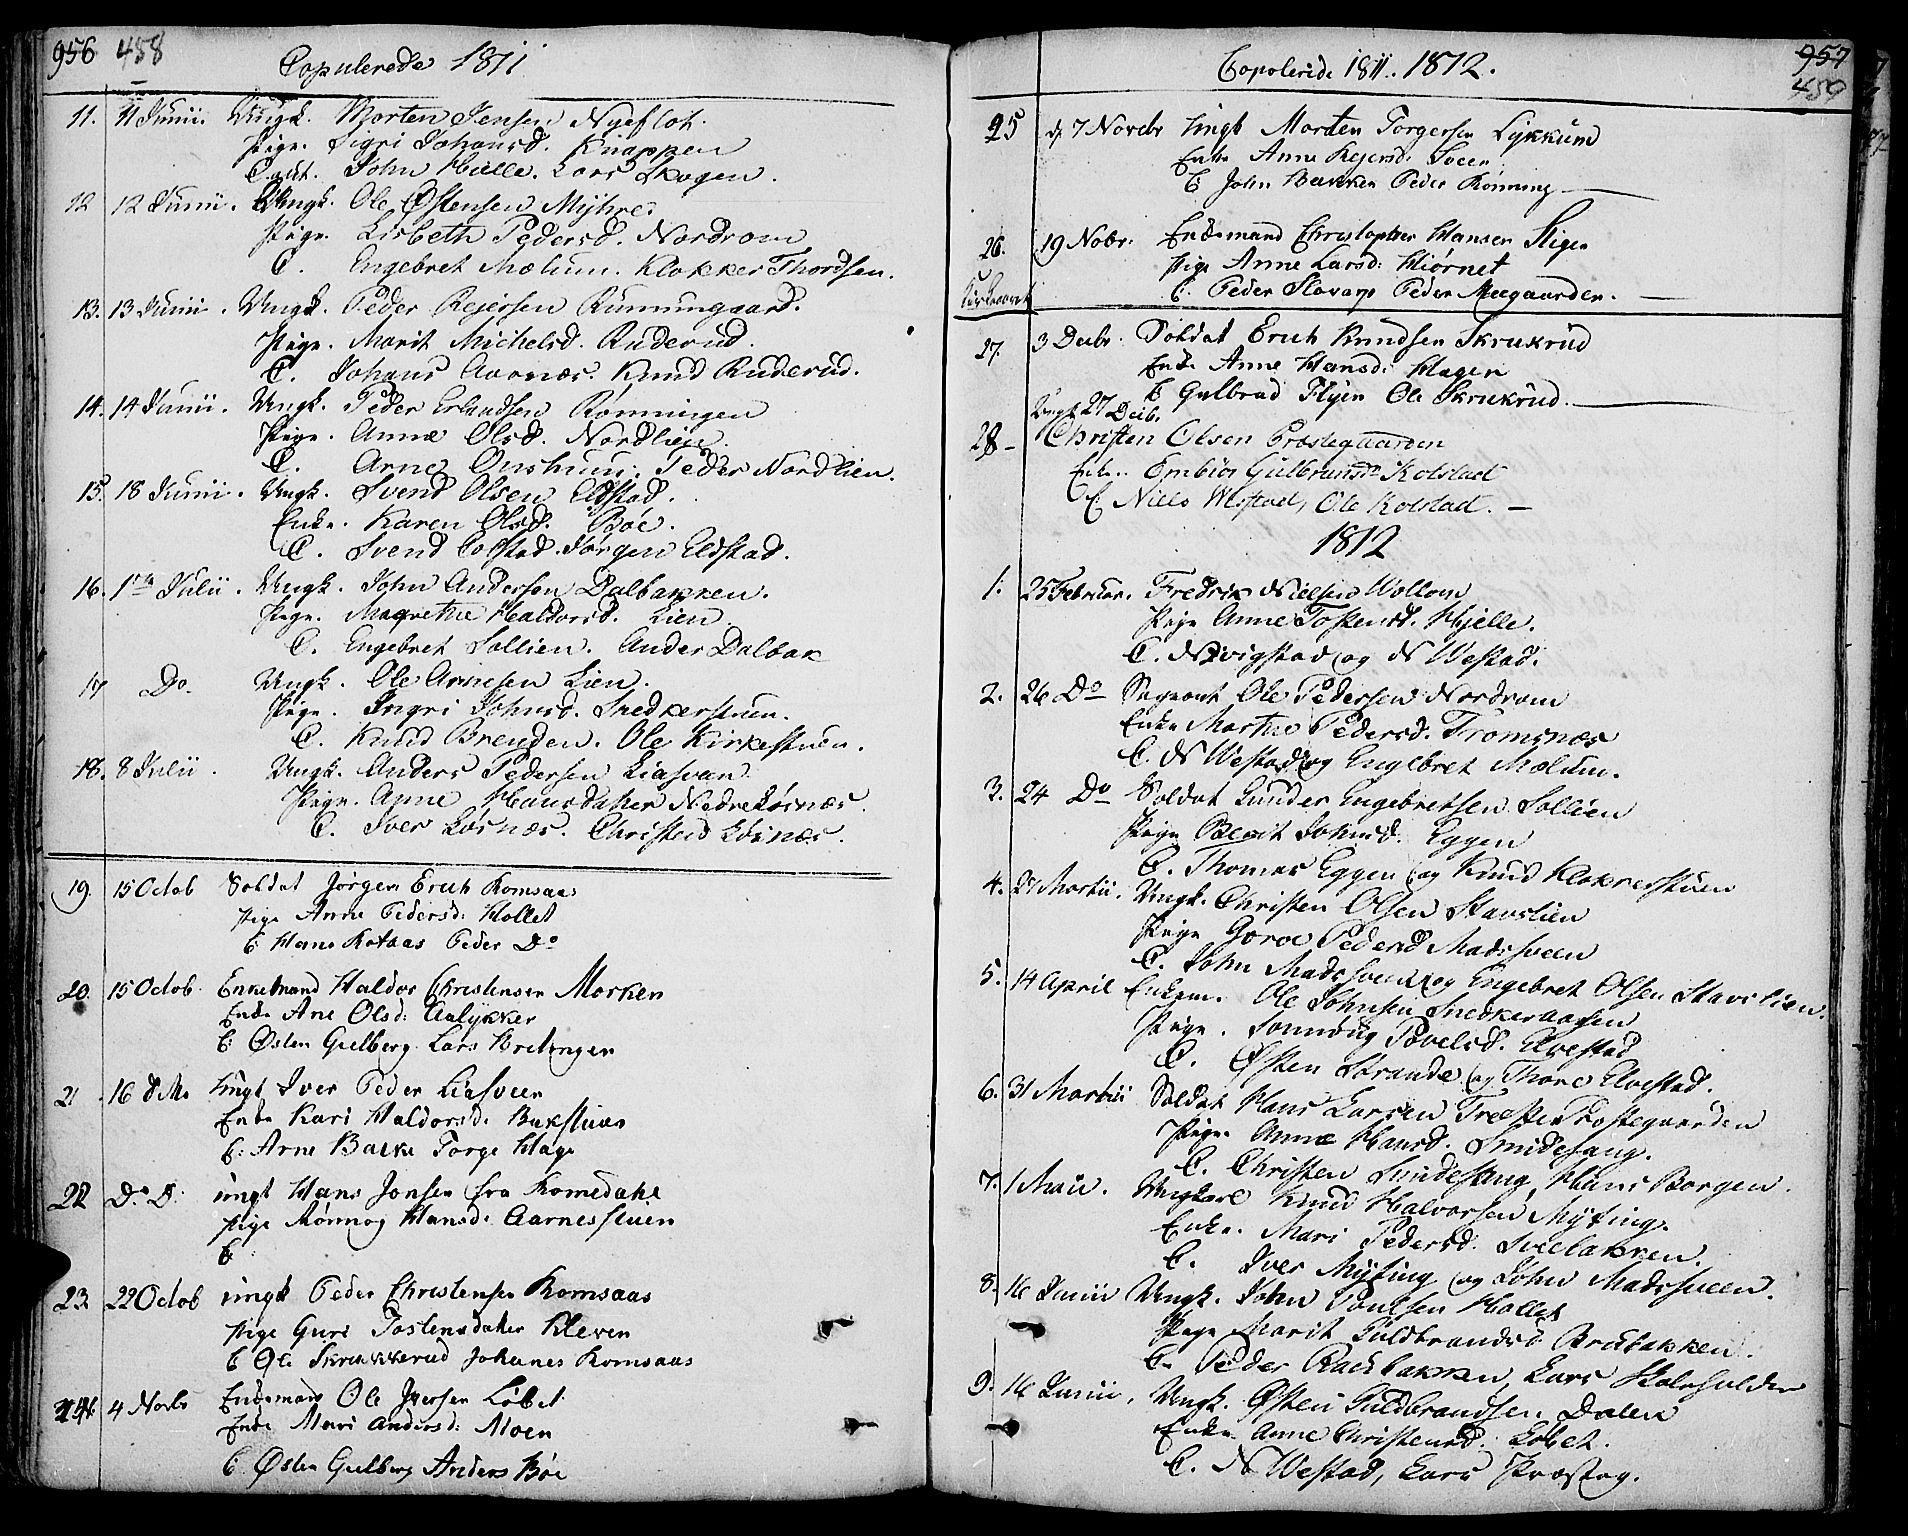 956 458
Copulerede 1811
11. 11 Junii. Ungk. Morten Jensen Nyefløt.
Pige. Sigri Johansd. Knappen
Caut. John Hielle. Lars Skogen.
12 12 Junii. Ungk. Ole Østensen Myhre.
Pige. Lisbeth Pedersd. Nordrom
C. Engebret Mælum. Klokker Thordsen.
13. 13 Junii. Ungk. Peder Rejersen Runningaard.
Pige. Marit Michelsd. Ruderud.
C. Johans Aaonæs. Knud Ruderud.
14. 14 Junii. Ungk. Peder Erlandsen Rønningen
Pige. Anne Olsd. Nordlien.
C. Arne Onshuus. Peder Nordlien.
15. 18 Junii. Ungk. Svend Olsen Eldstad.
Enke. Karen Olsd. Bøe.
C. Svend Colstad. Jørgen Eldstad.
16. 1ste Julii. Ungk. John Andersen Dalbakken.
Pige. Magrethe Haldorsd. Lien
C. Engebret Sollien. Ander Dalbak
17 Do. Ungk. Ole Arnesen Lien.
Pige. Ingri Johnsd. Snedkerstuen.
C. Knud Brenden. Ole Kirkestuen.
18. 8 Julii. Ungk. Anders Pedersen Liasvan
Pige. Anne Hansdatter Nedre Løsnæs.
C. Iver Løsnæs. Christen Løsnæs.
19. 15 Octob Soldat Jørgen Erich Komsaas
Pige Anne Pedersd: Hollet
C: Hans Kotaas Peder Do
20. 15 Octob. Enkemand Haldor Christensen Morken
Enke Ane Olsd: Aalykker
C: Østen Gulberg Lars Bretingen
21 16 d M. Ungk Iver Peder Liasveen
Enke Kari Haldorsd: Bakstuen
C: Arne Bakke Torge Hage
22 Do D: ungk Hans Jonsen fra Romedahl
Pige Rønnog Hansd: Aarnesstuen
C:
23 22 Octob ungk Peder Christensen Komsaas
Pige Guri Tostensdatter Kleven
C Ole Skrukkerud Johanes Komsaas
24. 4 Novbr Enkemand Ole Iversen Løbet
Enke Mari Andersd: Moen
C: Østen Gulberg Anders Bøe
957
459
Copolerede 1811. 1812.
25 d. 7 Novebr Ungk Morten Torgersen Lykkum
Enke Anne Rejersd: Sveen
C John Bakken Peder Rønning
26. 19 Nobr: Enkemand Christopher Hansen Stigen
Pige Anne Larsd: Hiørnet
C: Peder Slovarp Peder Megaarden.
27. 3 Decbr. Soldat Erich Knudsen Skrukrud
Enke Anne Hansd: Hagen
C Gulbrand Flyen Ole Skrukrud
Ungk 27 Decb.
28 Christen Olsen Præstegaarden
Enke. Embiør Gulbrandsd Kolstad
C: Niels Westad, Ole Kolstad.
1812
1. 25 Februar. Fredrik Nielsen Wollom
Pige Anne Tostensd. Hjelle.
C. N Vigstad og N Westad.
2. 26 Do Sergeant Ole Pedersen Nordrom
Enke Marthe Pedersd. Tromsnæs
C. N Westad og Engebret Mælum.
3. 24 Do Soldat Gunder Engebretsen Sollien
Pige Berit Johnsd. Eggen
C. Thomas Eggen og Knud Klokkerstuen
4. 27 Martii. Ungk. Christen Olsen Stavslien
Pige Goroe Pedersd Madssveen
C. John Madssveen og Engebret Olsen Stavslien.
5. 14 April Enkem. Ole Johnsen Snedkeraasen
Pige. Sønnoug Povelsd. Elvestad
C. Østen Strande og Thore Elvestad.
6. 31 Martii Soldat Hans Larsen Præstegaarden
Pige. Anne Hansd. Smidesang.
C. Christen Smidesang, Hans Borgen.
7. 1 Maii. Ungkarl Knud Halvorsen Myting.
Enke. Mari Pedersd. Sveebakken.
C. Iver Myting og John Madssveen.
8. 16 Junii Ungk. John Poulsen Hollet
Pige Marit Guldbrandsd Brubakken.
C. Peder Brubakken, Lars Stalsfolden
9. 16 Junii. Ungk. Østen Guldbrandsen Dalen
Enke Anne Christensd. Løbet.
C. N Westad, Lars Præsteg.